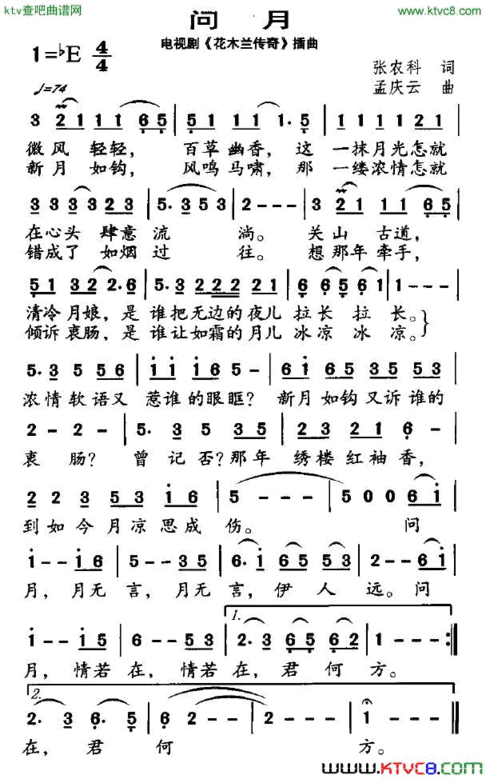 ktv查吧曲谱网
http://www.ktvc8.com
问 月
电视剧《花木兰传奇》插曲
1=♭E 4/4
张农科 词
♩=74
孟庆云 曲
3 21 1 1 1 6 5 | 5 1 1 5 1 1 1. 5 | 3 21 1 1 1 6 5 |
微风 轻轻, 百草幽香, 这 一抹月光怎就
新月 如钩, 风鸣马啸, 那 一缕浓情怎就
3 3 3 3 3 2 3 | 5. 3 5 3 | 2 - - - | 3 21 1 1 1 6 5 |
在心头 肆意 流 淌。 关山 古道,
错成了 如烟 过 往。 想那年牵手,
5 1 3 2 2. 6 | 5. 3 2 2 2 2 1 | 6 6 5 6 5 6 | 1 - - - |
清冷月娘, 是 谁把无边的夜儿 拉长 拉长。
倾诉衷肠, 是 谁让如霜的月儿 冰凉 冰凉。
5. 3 5 5 6 | i i 6 5 - | 5. 3 5 5 i 6 5 3 |
浓情软语又 惹谁的眼眶? 新月如钩又诉谁的
2 - 2 - | 5. 3 5 5 i 6 5 | 3 2 3 2 1 6 - |
衷 肠? 曾记否?那年 绣楼红袖香,
2 2 3 5 5 3 i 6 | 5 - - - | 5 0 0 6 i |
到如今月凉思成 伤。 问
i - - i 6 | 5 - - 5 3 | 6. 5 6 i | 2 - - 6 i |
月, 月无言, 月无言, 伊 人 远。问
i - - i 5 | 6 - - 5 3 | 1. 2. 3 6 5 6 2 | 1 - - - :‖
月, 情若在, 情若在, 君 何 方。
2. 2. 3 6. 5 | 5 - - - | 2 - - - | 1 - - - ‖
在, 君 何 方。
www.KTVC8.com